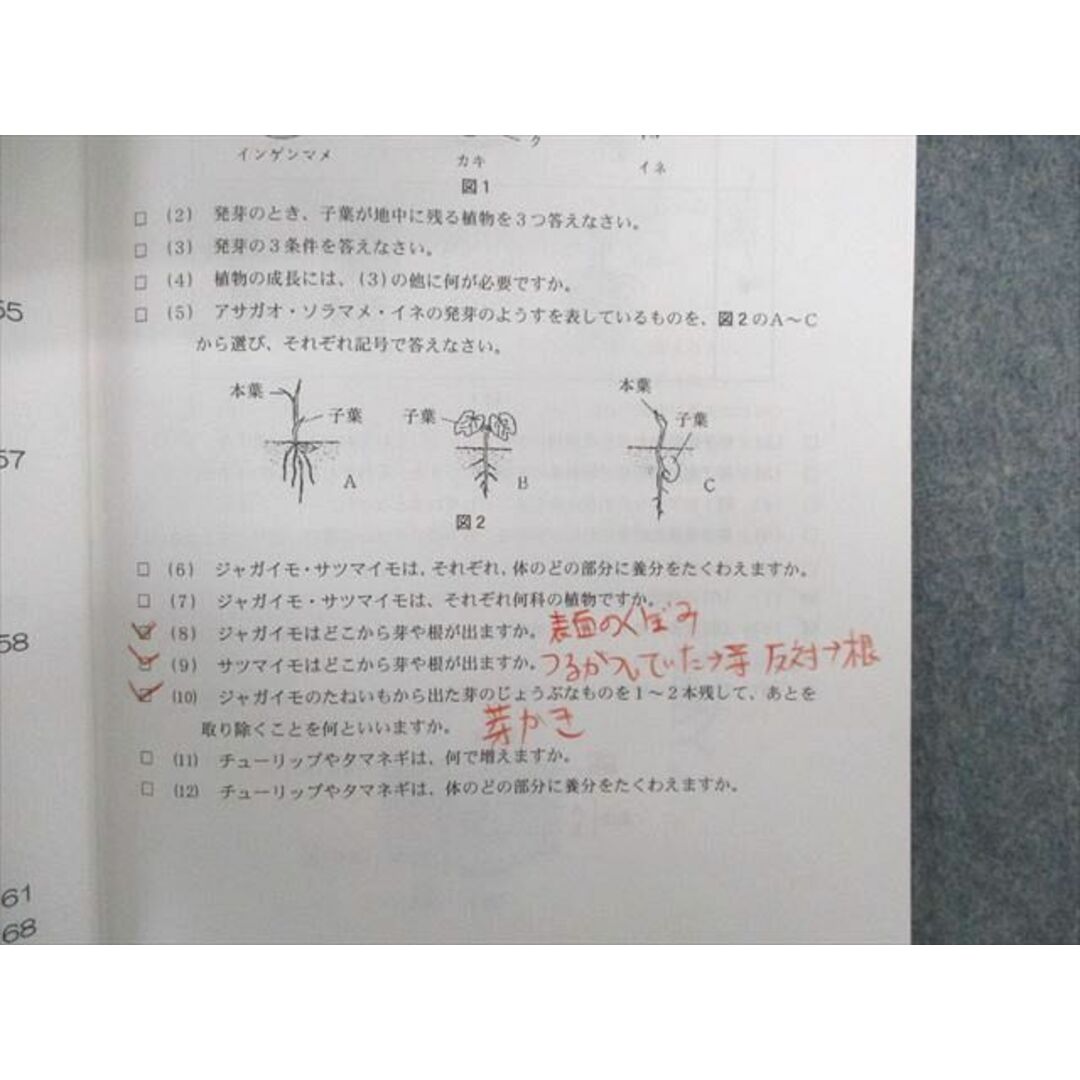 ク
インゲンマメ カキ イネ
図1
□ (2) 発芽のとき、子葉が地中に残る植物を3つ答えなさい。
□ (3) 発芽の3条件を答えなさい。
□ (4) 植物の成長には、(3)の他に何が必要ですか。
55
□ (5) アサガオ・ソラマメ・イネの発芽のようすを表しているものを、図2のA〜C
から選び、それぞれ記号で答えなさい。
本葉 子葉 A
子葉 B
本葉 子葉 C
57
図2
□ (6) ジャガイモ・サツマイモは、それぞれ、体のどの部分に養分をたくわえますか。
□ (7) ジャガイモ・サツマイモは、それぞれ何科の植物ですか。
58
□ (8) ジャガイモはどこから芽や根が出ますか。 表面のくぼみ
□ (9) サツマイモはどこから芽や根が出ますか。 つるがついていた→芽 反対→根
□ (10) ジャガイモのたねいもから出た芽のじょうぶなものを1〜2本残して、あとを
取り除くことを何といいますか。 芽かき
□ (11) チューリップやタマネギは、何で増えますか。
□ (12) チューリップやタマネギは、体のどの部分に養分をたくわえますか。
61
68